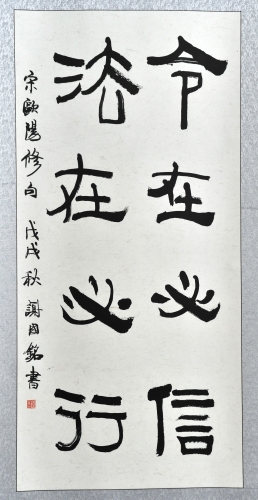 令在必信
法在必行
宋歐陽修句 戊戌秋 謝國銘書